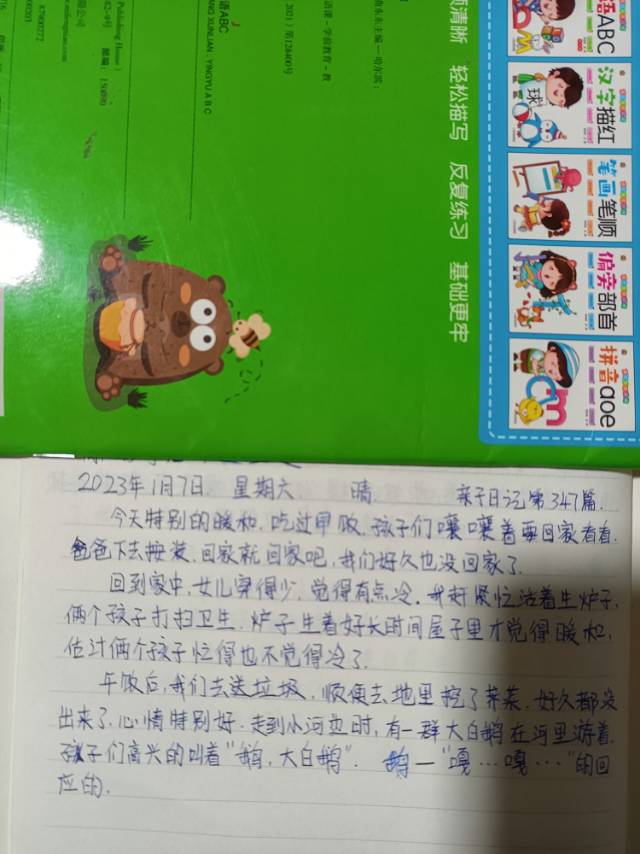 语ABC
汉字描红
球
笔画笔顺
偏旁部首
拼音aoe
清晰 轻松描写 反复练习 基础更牢
语课-学前教育-教
2021）第128400号
语ABC
YINGYU A B C
Publishing House）
邮编：150090
2023年1月7日 星期六 晴 亲子日记第347篇.
今天特别的暖和，吃过早饭，孩子们嚷嚷着要回家看看.
爸爸下去安装，回家就回家吧，我们好久也没回家了.
回到家中，女儿穿得少，觉得有点冷，我赶紧忙活着生炉子，
两个孩子打扫卫生，炉子生着好长时间屋子里才觉得暖和，
估计俩个孩子忙得也不觉得冷了.
午饭后，我们去送垃圾，顺便去地里挖了荠菜，好久都没
出来了，心情特别好，走到小河边时，有一群大白鹅在河里游着.
孩子们高兴的叫着“鹅，大白鹅”. 鹅一“嘎…嘎…”的回
应的.